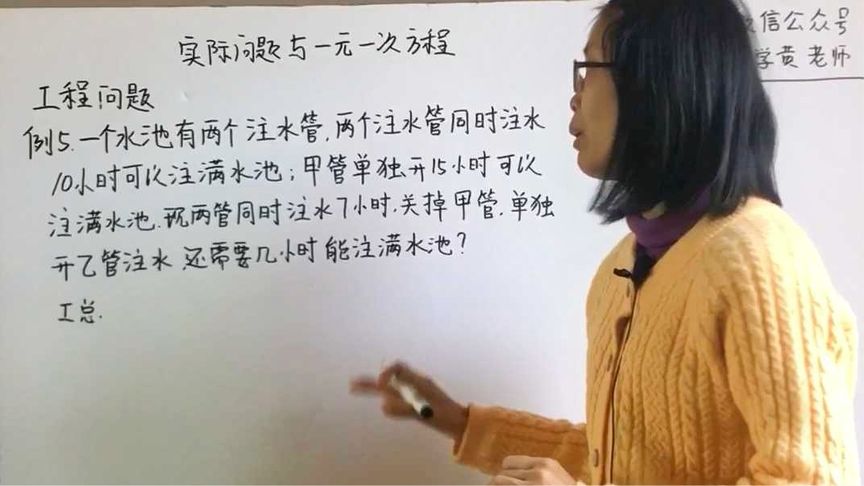 实际问题与一元一次方程
信公众号
学黄老师
工程问题
例5.一个水池有两个注水管,两个注水管同时注水
10小时可以注满水池;甲管单独开15小时可以
注满水池.现两管同时注水7小时.关掉甲管.单独
开乙管注水.还需要几小时能注满水池?
工总.